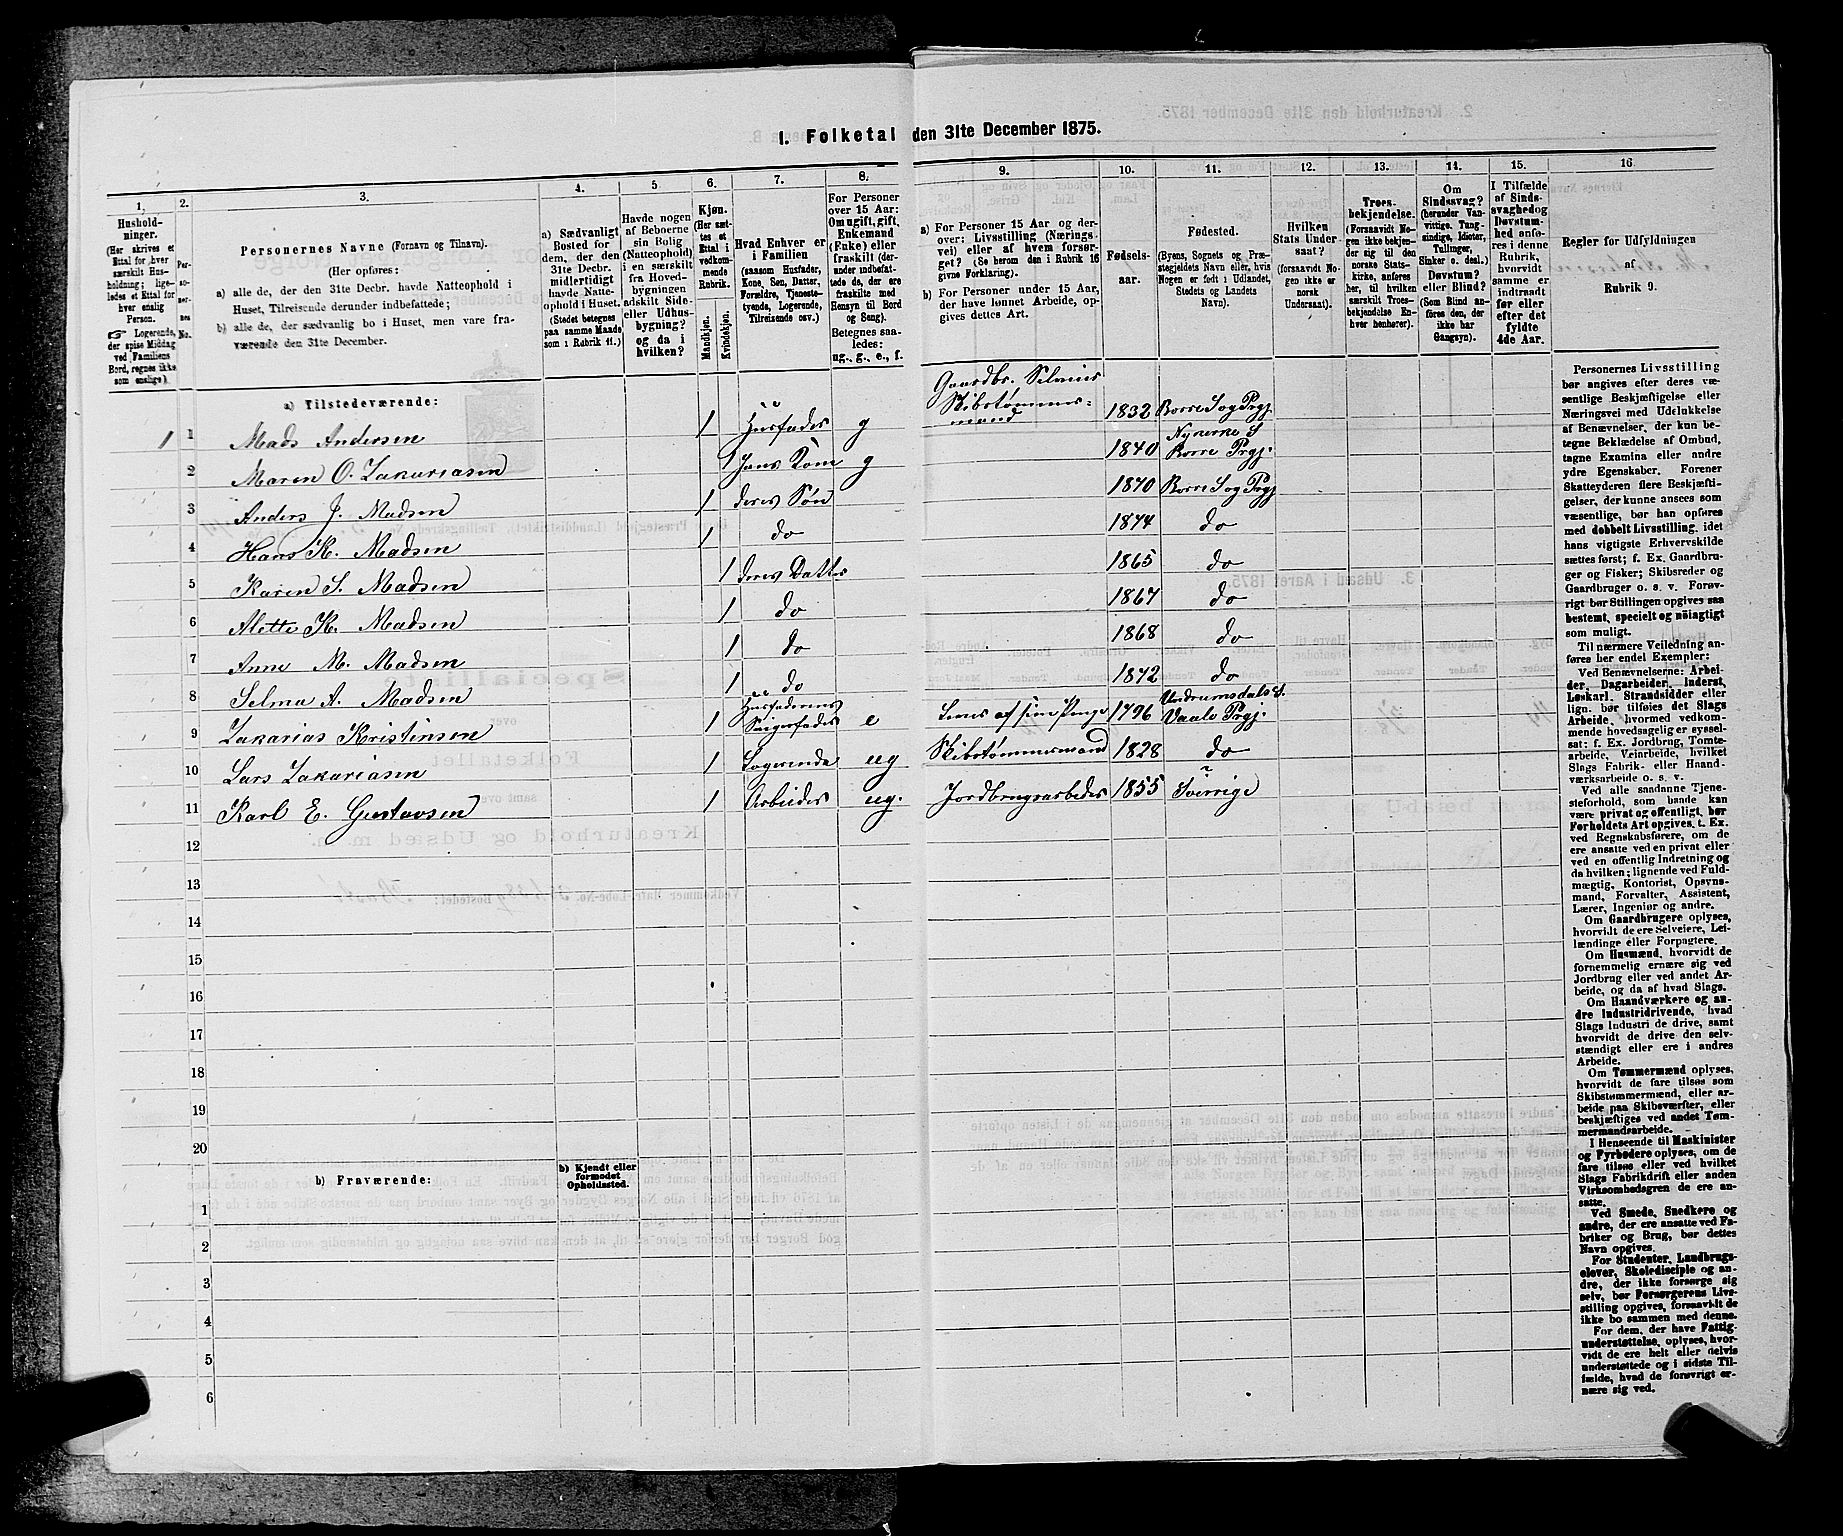 1. Folketal den 31te December 1875.
1.
Hushold-
ninger.
(Her skrives et
Ettal for hver
særskilt Hus-
holdning; lige-
ledes et Ettal for
hver enslig
Person.
☞ Logerende,
der spise Middag
ved Familiens
Bord, regnes ikke
som enslige).
2.
Per-
so-
ner-
nes
No.
3.
Personernes Navne (Fornavn og Tilnavn).
(Her opføres:
a) alle de, der den 31te Decbr. havde Natteophold i
Huset, Tilreisende derunder indbefattede;
b) alle de, der sædvanlig bo i Huset, men vare fra-
værende den 31te December.
4.
a) Sædvanligt
Bosted for
dem, der den
31te Decbr.
midlertidigt
havde Natte-
ophold i Huset.
(Stedet betegnes
paa samme Maade
som i Rubrik 11.)
5.
Havde nogen
af Beboerne
sin Bolig
(Natteophold)
i en særskilt
fra Hoved-
bygningen
adskilt Side-
eller Udhus-
bygning?
og da i
hvilken?
6.
Kjøn.
(Her sæt-
tes et
Ettal i
vedkom-
mende
Rubrik.
Mandkjøn.
Kvindekjøn.
7.
Hvad Enhver er
i Familien
(saasom Husfader,
Kone, Søn, Datter,
Forældre, Tjeneste-
tyende, Logerende,
Tilreisende osv.)
8.
For Personer
over 15 Aar:
Om ugift, gift,
Enkemand
(Enke) eller
fraskilt (der-
under indbefat-
tede de, der ere
fraskilte med
Hensyn til Bord
og Seng).
Betegnes saa-
ledes:
ug., g., e., f.
9.
a) For Personer 15 Aar og der-
over: Livsstilling (Nærings-
vei) eller af hvem forsør-
get? (Se herom den i Rubrik 16
givne Forklaring).
b) For Personer under 15 Aar,
der have lønnet Arbeide, op-
gives dettes Art.
10.
Fødsels-
aar.
11.
Fødested.
(Byens, Sognets og Præ-
stegjeldets Navn eller, hvis
Nogen er født i Udlandet,
Stedets og Landets
Navn).
12.
Hvilken
Stats Under-
saat?
(forsaavidt No-
gen ikke er
norsk
Undersaat).
13.
Troes-
bekjendelse.
(Forsaavidt No-
gen ikke bekjen-
der sig til den
norske Stats-
kirke, anføres
her, til hvilken
særskilt Troes-
bekjendelse En-
hver henhører).
14.
Om
Sindssvag?
(herunder Van-
vittige, Tung-
sindige, Idioter,
Tullinger,
Sinker o. desl.)
Døvstum?
eller Blind?
(Som Blind an-
føres den, der
ikke har
Gangsyn).
15.
I Tilfælde
af Sinds-
svaghed og
Døvstum-
hed anfø-
res i denne
Rubrik,
hvorvidt
samme er
indtraadt
før eller
efter det
fyldte
4de Aar.
16
Regler for Udfyldningen
af
Rubrik 9.
a) Tilstedeværende:
1 1 Mads Andersen 1 Husfader g Gaardbr. Selveier Skibstømmer=mand 1832 Borre Sog Prgj.
2 Maren O. Zakariasen 1 hans Kone g 1840 Nykirke S Borre Prgj.
3 Anders J. Madsen 1 deres Søn 1870 Borre Sog Prgj
4 Hans K. Madsen 1 do 1874 do
5 Karen S. Madsen 1 deres Datter 1865 do
6 Alette K. Madsen 1 do 1867 do
7 Anne M. Madsen 1 do 1868 do
8 Selma A. Madsen 1 do 1872 do
9 Zakarias Kristinsen 1 Husfaderens Svigerfader e Leves af sine Penge 1796 Undrumsdals S. Vaale Prgj.
10 Lars Zakariasen 1 Logerende ug Skibstømmermand 1828 do
11 Karl E. Gustavsen 1 Arbeider ug. Jordbrugsarbeder 1855 Sverrige
12
13
14
15
16
17
18
19
20
b) Fraværende:
b) Kjendt eller
formodet
Opholdssted.
1
2
3
4
5
6
Personernes Livsstilling
bør angives efter deres væ-
sentlige Beskjæftigelse eller
Næringsvei med Udelukkelse
af Benævnelser, der kun be-
tegne Beklædelse af Ombud,
tagne Examina eller andre
ydre Egenskaber. Forener
Skatteyderen flere Beskjæfti-
gelser, der kunne ansees som
væsentlige, bør han opføres
med dobbelt Livsstilling, idet
hans vigtigste Erhvervskilde
sættes først; f. Ex. Gaardbru-
ger og Fisker; Skibsreder og
Gaardbruger o. s. v. Forøv-
rigt bør Stillingen opgives saa
bestemt, specielt og nøiagtigt
som muligt.
Til nærmere Veiledning an-
føres her endel Exempler:
Ved Benævnelserne: Arbei-
der, Dagarbeider, Inderst,
Løskarl, Strandsidder eller
lign. bør tilføies det Slags
Arbeide, hvormed vedkom-
mende hovedsagelig er syssel-
sat: f. Ex. Jordbrug, Tomte-
arbeide, Veiarbeide, hvilket
Slags Fabrik- eller Haand-
værksarbeide o. s. v.
Ved alle saadanne Tjene-
steforhold, som baade kan
være privat og offentligt, bør
Forholdets Art opgives, t. Ex.
ved Regnskabsførere, om de
ere ansatte ved en privat eller
ved en offentlig Indretning og
da hvilken; lignende ved Fuld-
mægtig, Kontorist, Opsyns-
mand, Forvalter, Assistent,
Lærer, Ingeniør og andre.
Om Gaardbrugere oplyses,
hvorvidt de ere Selveiere, Lei-
lændinge eller Forpagtere.
Om Husmænd, hvorvidt de
fornemmelig ernære sig ved
Jordbrug eller ved andet Ar-
beide, og da af hvad Slags.
Om Haandværkere og an-
dre Industridrivende, hvad
Slags Industri de drive, samt
hvorvidt de drive den selv-
stændigt eller ere i andres
Arbeide.
Om Tømmermænd oplyses,
hvorvidt de fare tilsøs som
Skibstømmermænd, eller ar-
beide paa Skibsværfter, eller
beskjæftiges ved andet Tøm-
mermandsarbeide.
I Henseende til Maskinister
og Fyrbødere oplyses, om de
fare tilsøs eller ved hvilket
Slags Fabrikdrift eller anden
Virksomhedsgren de ere an-
satte.
Ved Smede, Snedkere og
andre, der ere ansatte ved Fa-
briker og Brug, bør dettes
Navn opgives.
For Studenter, Landbrugs-
elever, Skoledisciple og an-
dre, der ikke forsørge sig
selv, bør Forsørgerens Livs-
stilling opgives, forsaavidt de
ikke bo sammen med denne.
For dem, der have Fattig-
understøttelse, oplyses, hvor-
vidt de ere helt eller delvis
understøttede og i sidste Til-
fælde, hvad de forøvrigt er-
nære sig ved.